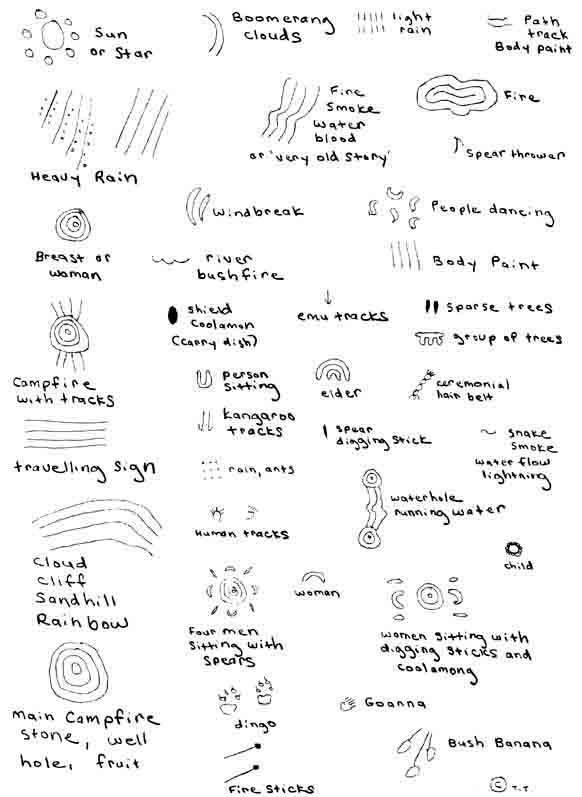 Sun
or Star
Boomerang
clouds
light
rain
Path
track
Body paint
Heavy Rain
Fire
Smoke
Water
blood
or 'very old story'
Fire
Spear thrower
Breast or
woman
windbreak
People dancing
river
bushfire
Body Paint
Campfire
with tracks
shield
Coolamon
(carry dish)
emu tracks
sparse trees
group of trees
person
sitting
elder
ceremonial
hair belt
kangaroo
tracks
spear
digging stick
snake
smoke
water flow
lightning
travelling sign
rain, ants
waterhole
running water
Human tracks
child
Cloud
Cliff
Sandhill
Rainbow
Four men
sitting with
spears
woman
women sitting with
digging sticks and
coolamong
main Campfire
stone, well
hole, fruit
dingo
Goanna
Fire Sticks
Bush Banana
© T.T.